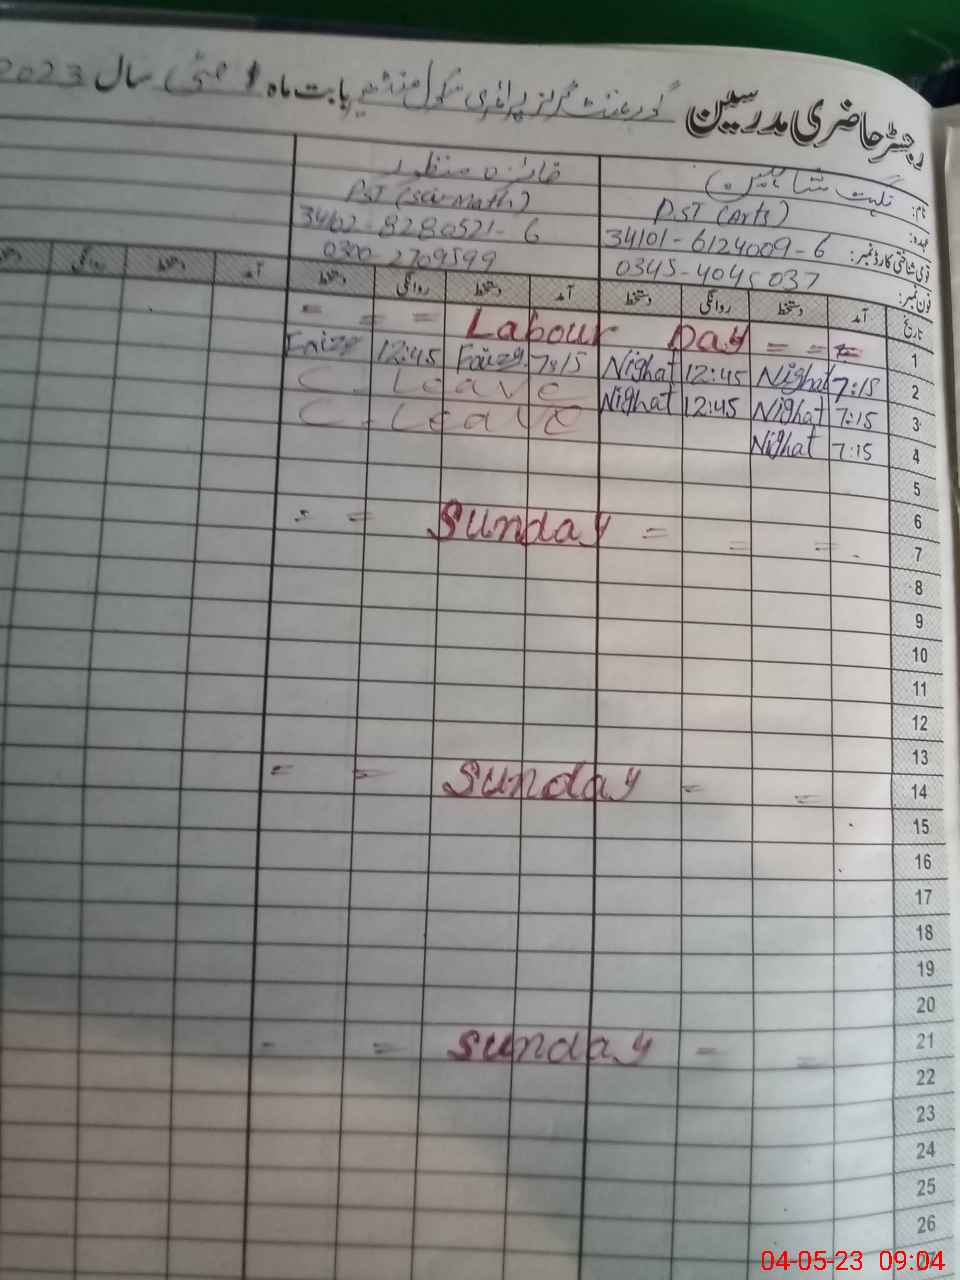 رجسٹر حاضری مدرسین گورنمنٹ گرلز پرائمری سکول بابت ماہ مئی سال 2023
نام: نگہت شاہین فائزہ منظور
عہدہ: P.ST (Arts) PST (Sci-Math)
قومی شناختی کارڈ نمبر: 34101-6124009-6 34602-8280521-6
فون نمبر: 0345-4045037 0300-2709599
تاریخ آمد دستخط روانگی دستخط آمد دستخط روانگی دستخط آمد دستخط روانگی دستخط
1 = = = Labour Day = = =
2 7:15 Nighat 12:45 Nighat 7:15 Faiza 12:45 Faiza
3 7:15 Nighat 12:45 Nighat C. Leave
4 7:15 Nighat C. Leave
5
6
7 = = Sunday = = =
8
9
10
11
12
13
14 = = Sunday = =
15
16
17
18
19
20
21 - = Sunday = =
22
23
24
25
26
27
04-05-23 09:04